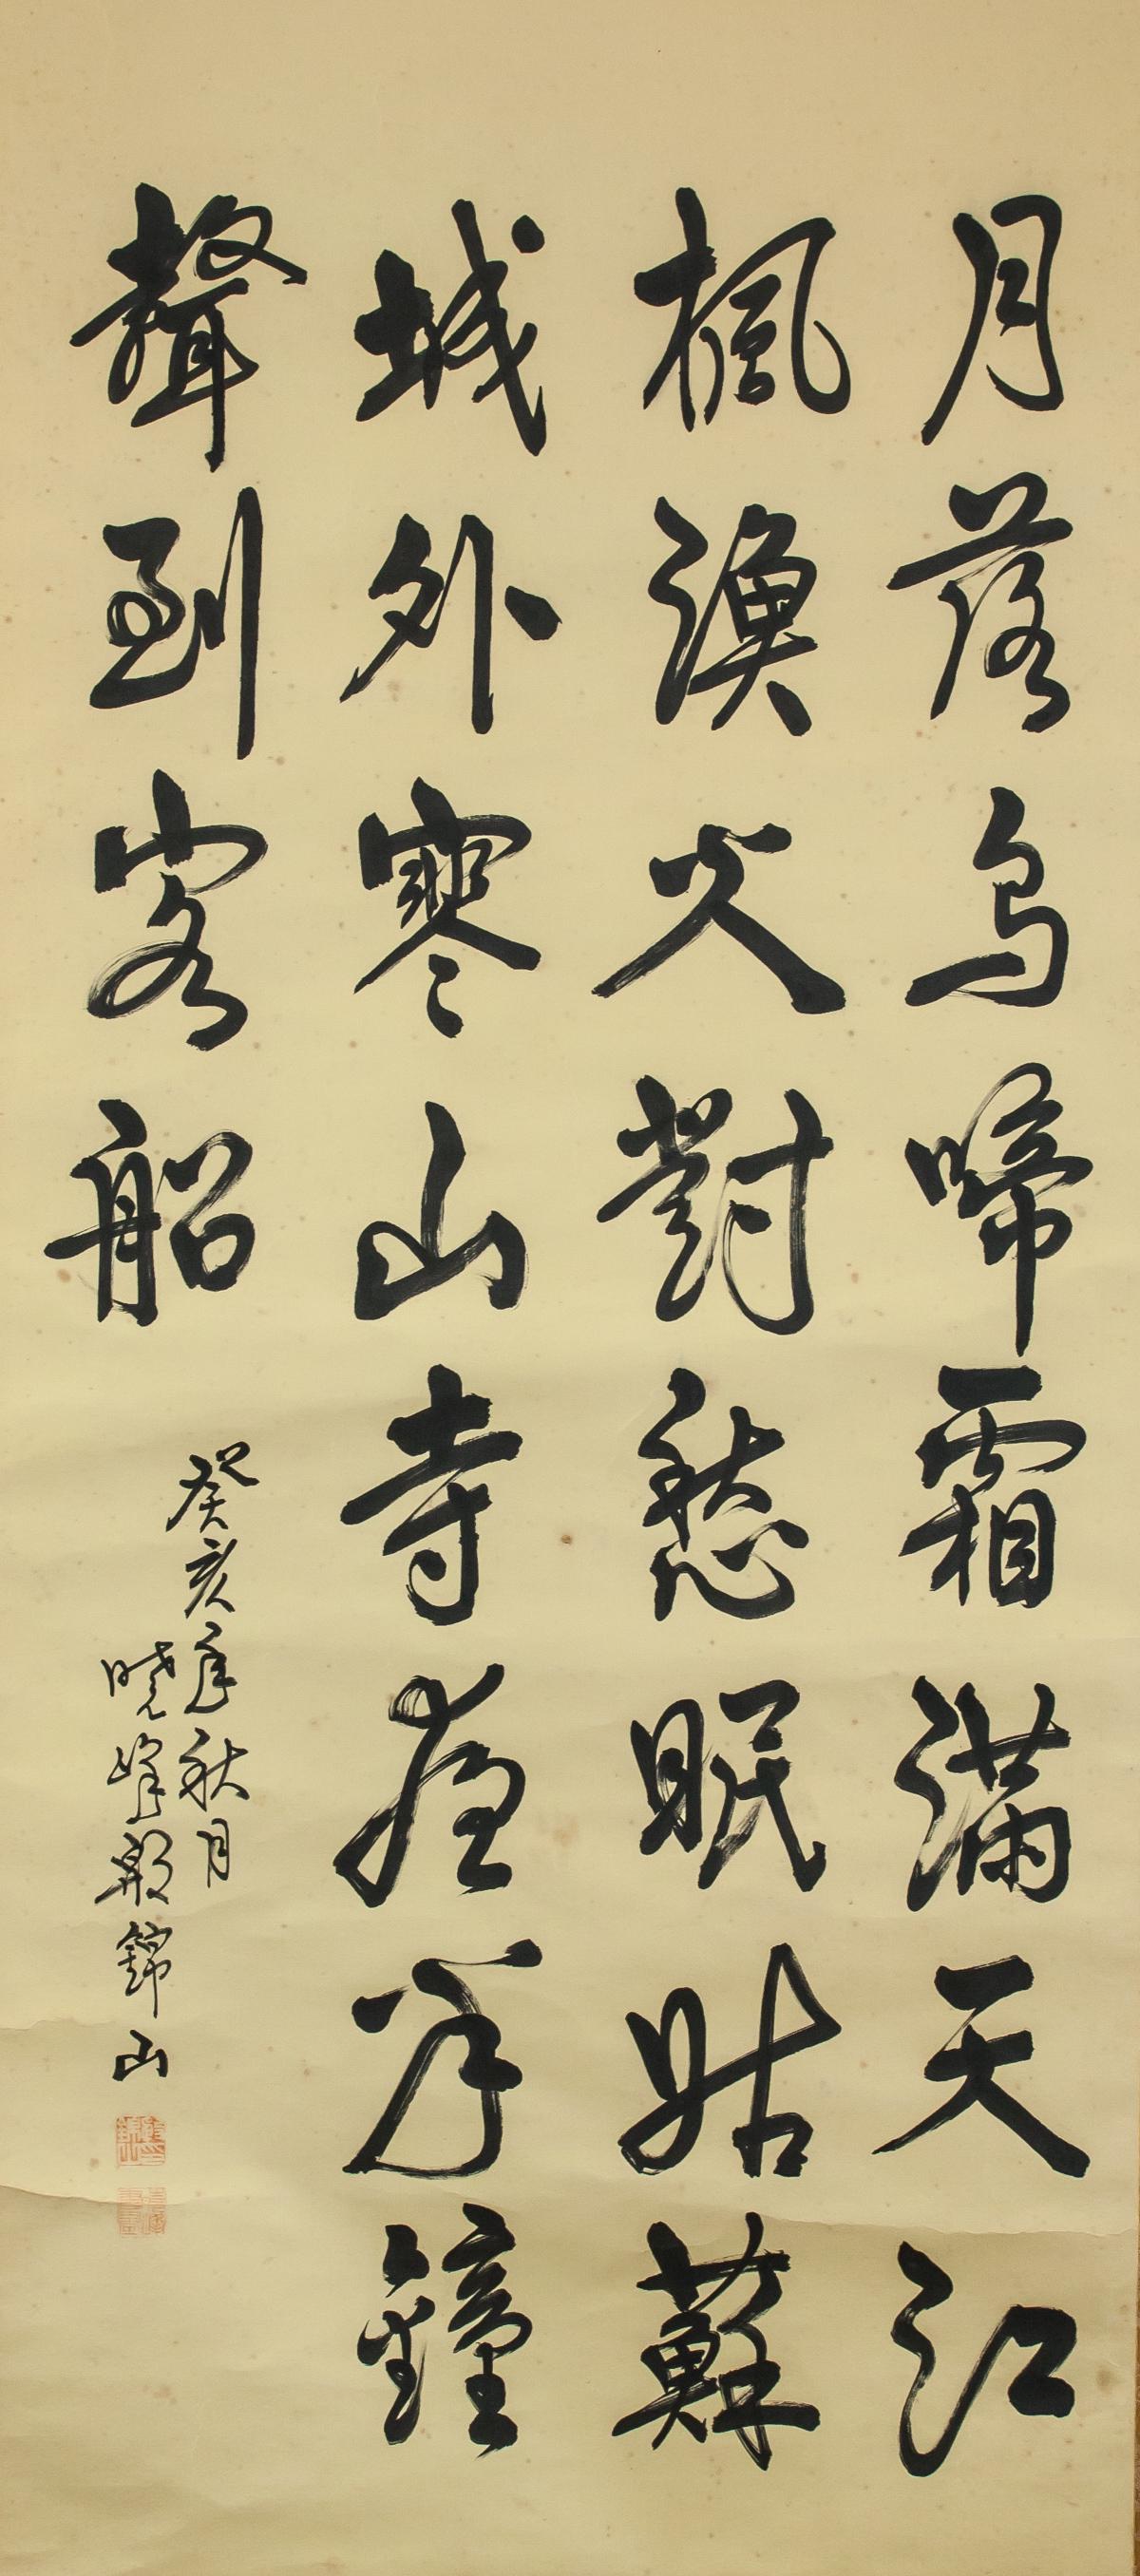 月落烏啼霜滿天江
楓漁火對愁眠姑蘇
城外寒山寺夜半鐘
聲到客船
癸亥年秋月
曉峰殷錦山